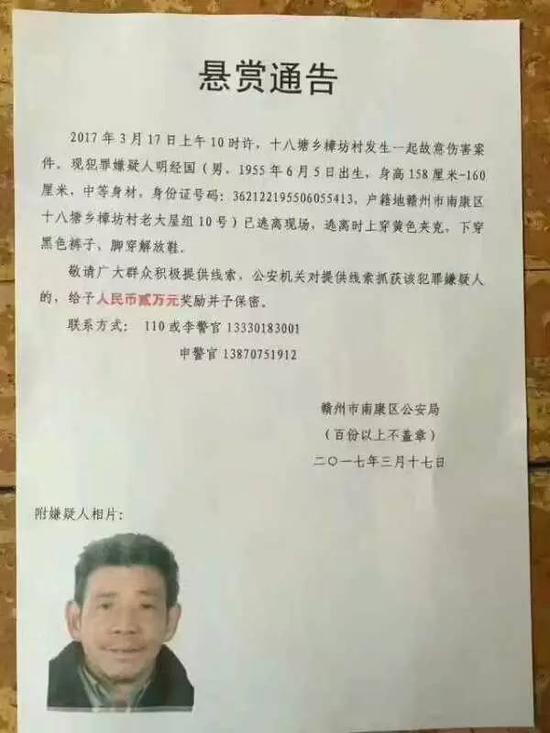 悬赏通告
2017 年 3 月 17 日上午 10 时许，十八塘乡樟坊村发生一起故意伤害案
件。现犯罪嫌疑人明经国（男，1955 年 6 月 5 日出生，身高 158 厘米-160
厘米，中等身材，身份证号码：362122195506055413，户籍地赣州市南康区
十八塘乡樟坊村老大屋组 10 号）已逃离现场，逃离时上穿黄色夹克，下穿
黑色裤子，脚穿解放鞋。
敬请广大群众积极提供线索，公安机关对提供线索抓获该犯罪嫌疑人
的，给予人民币贰万元奖励并予保密。
联系方式： 110 或李警官 13330183001
申警官 13870751912
赣州市南康区公安局
（百份以上不盖章）
二〇一七年三月十七日
附嫌疑人相片：